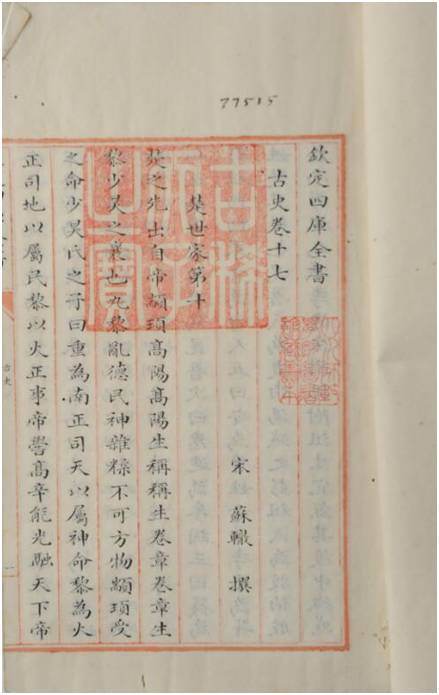 77515
欽定四庫全書
古史卷十七
宋 蘇轍 撰
楚世家第十
楚之先出自帝顓頊髙陽髙陽生稱稱生卷章卷章生
黎少昊之衰也九黎亂德民神雜糅不可方物顓頊受
之命少昊氏之子曰重為南正司天以屬神命黎為火
正司地以屬民黎以火正事帝嚳髙辛能光融天下帝
古史
一
古稀
天子
之寶